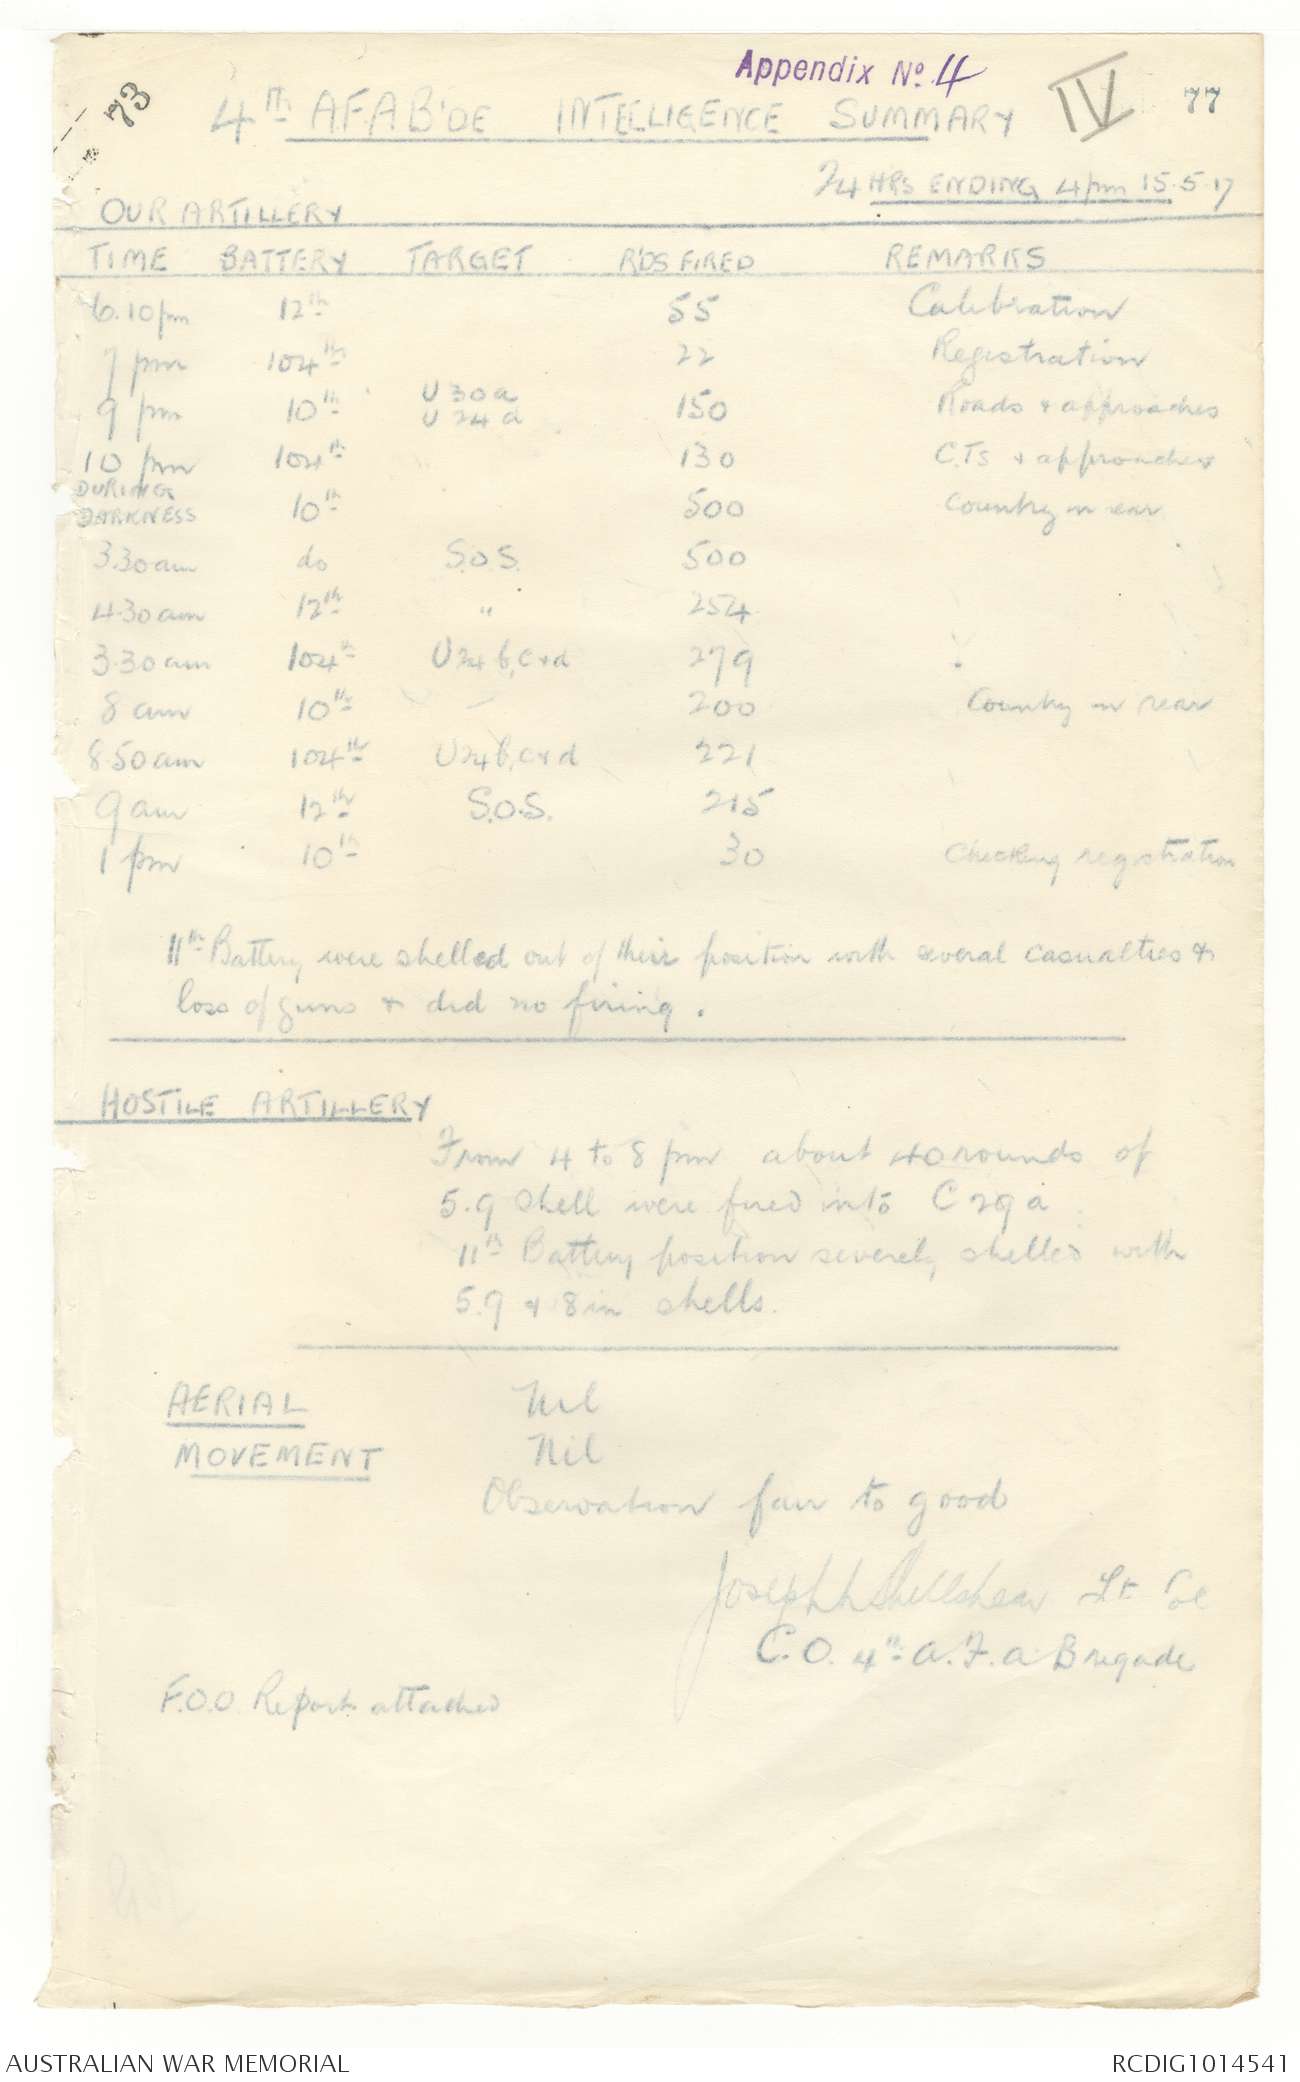 Appendix No. 4
73
IV
77
4th A.F.A B'DE INTELLIGENCE SUMMARY
24 HRS ENDING 4pm 15.5.17
OUR ARTILLERY
TIME BATTERY TARGET R'DS FIRED REMARKS
6.10 pm 12th 55 Calibration
7 pm 104th 22 Registration
9 pm 10th U 30 a U 24 d 150 Roads & approaches
10 pm 104th 130 C.Ts & approaches
DURING DARKNESS 10th 500 Country in rear
3.30 am do S.O.S. 500
4.30 am 12th " 254
3.30 am 104th U 24 b, c & d 279
8 am 10th - 200 Country in rear
8.50 am 104th U 24 b, c & d 221
9 am 12th S.O.S. 215
1 pm 10th 30 Checking registration
11th Battery were shelled out of their position with several casualties &
loss of guns & did no firing.
HOSTILE ARTILLERY
From 4 to 8 pm about 40 rounds of
5.9 shell were fired into C 29 a
11th Battery position severely shelled with
5.9 & 8 in shells.
AERIAL Nil
MOVEMENT Nil
Observation fair to good
Joseph L Shellshear Lt Col
C.O. 4th A.F.A Brigade
F.O.O. Reports attached
AUSTRALIAN WAR MEMORIAL
RCDIG1014541